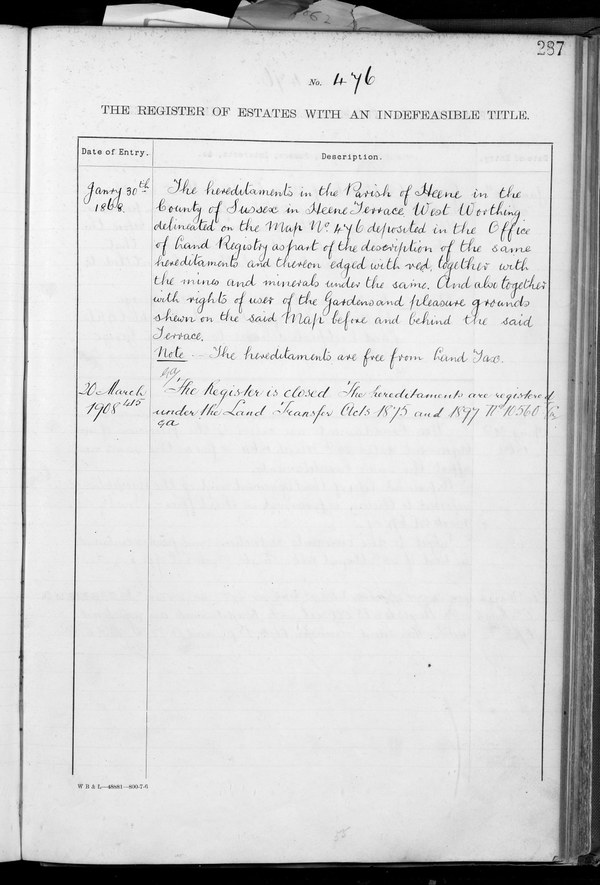 287
No. 476
THE REGISTER OF ESTATES WITH AN INDEFEASIBLE TITLE.
Date of Entry. Description.
Janry 30th 1868. The hereditaments in the Parish of Heene in the
County of Sussex in Heene Terrace West Worthing
delineated on the Map No. 476 deposited in the Office
of Land Registry as part of the description of the same
hereditaments and thereon edged with red, together with
the mines and minerals under the same. And also together
with rights of user of the Gardens and pleasure grounds
shewn on the said Map before and behind the said
Terrace.
Note — The hereditaments are free from Land Tax.
20 March 1908 415 The Register is closed The hereditaments are registered
under the Land Transfer Acts 1875 and 1897 No 10560
ga
W B & L—48881—800-7-6